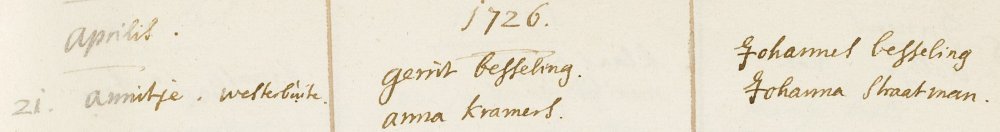 1726.
Aprilis.
21. annitje. westerbúite.
gerrit besseling.
anna kramers.
Johannes besseling
Johanna Straatman.